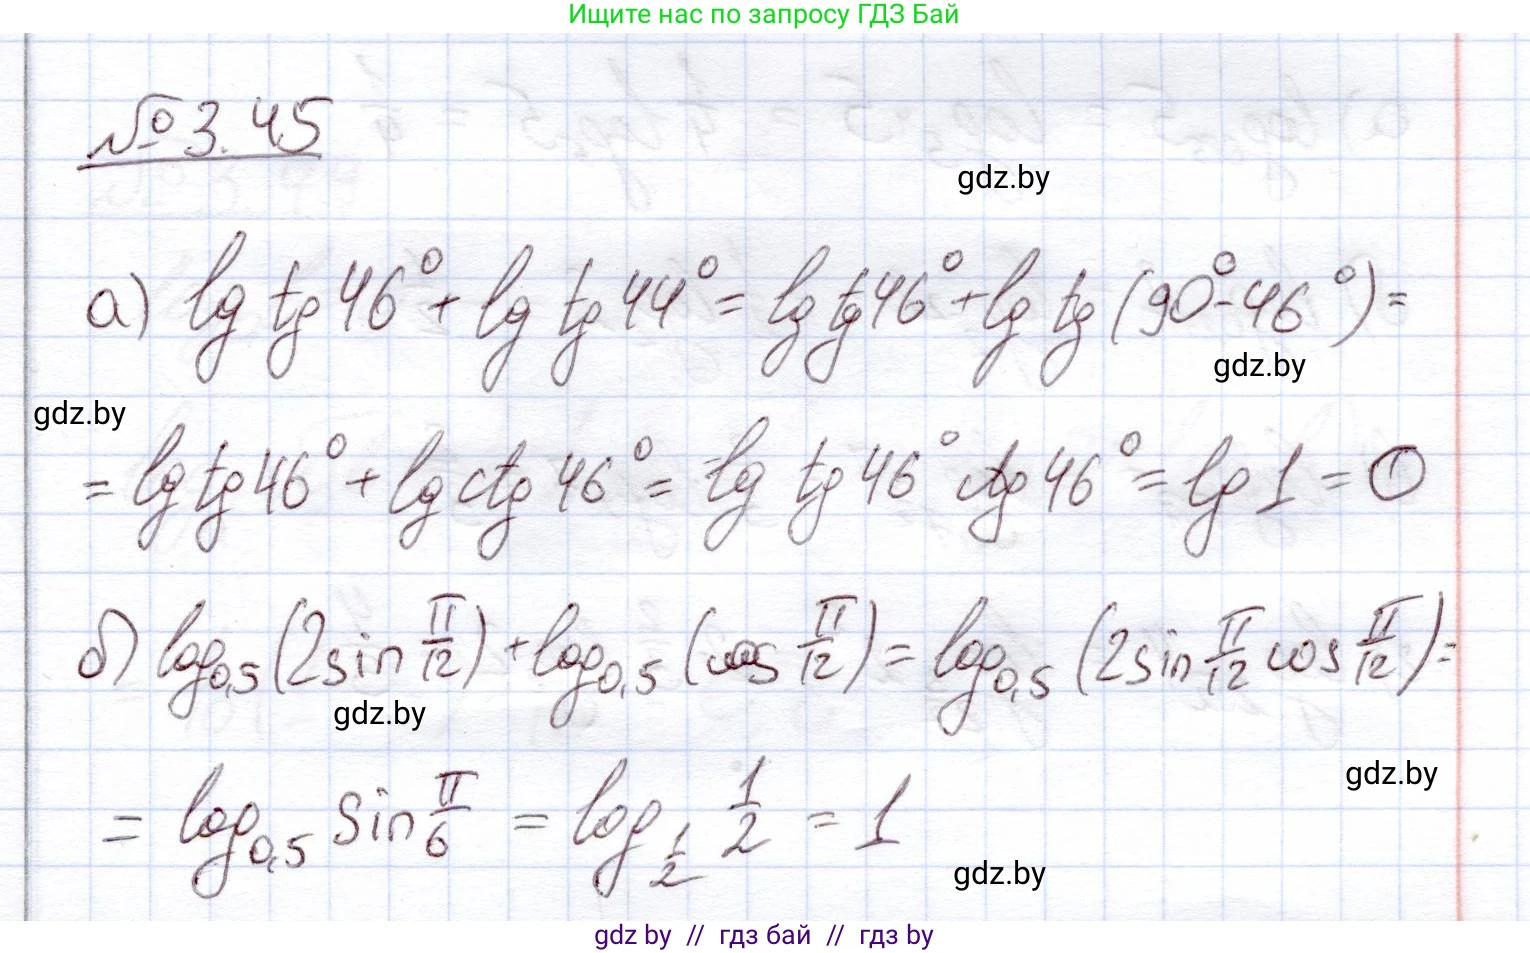 Ищите нас по запросу ГДЗ Бай
№ 3.45
gdz.by
а) lg tg 46° + lg tg 44° = lg tg 46° + lg tg (90° - 46°) =
gdz.by
gdz.by
= lg tg 46° + lg ctg 46° = lg tg 46° ctg 46° = lg 1 = 0
б) log₀,₅ (2 sin π/12) + log₀,₅ (cos π/12) = log₀,₅ (2 sin π/12 cos π/12) =
gdz.by
gdz.by
= log₀,₅ sin π/6 = log_{1/2} 1/2 = 1
gdz.by
gdz by // гдз бай // гдз by